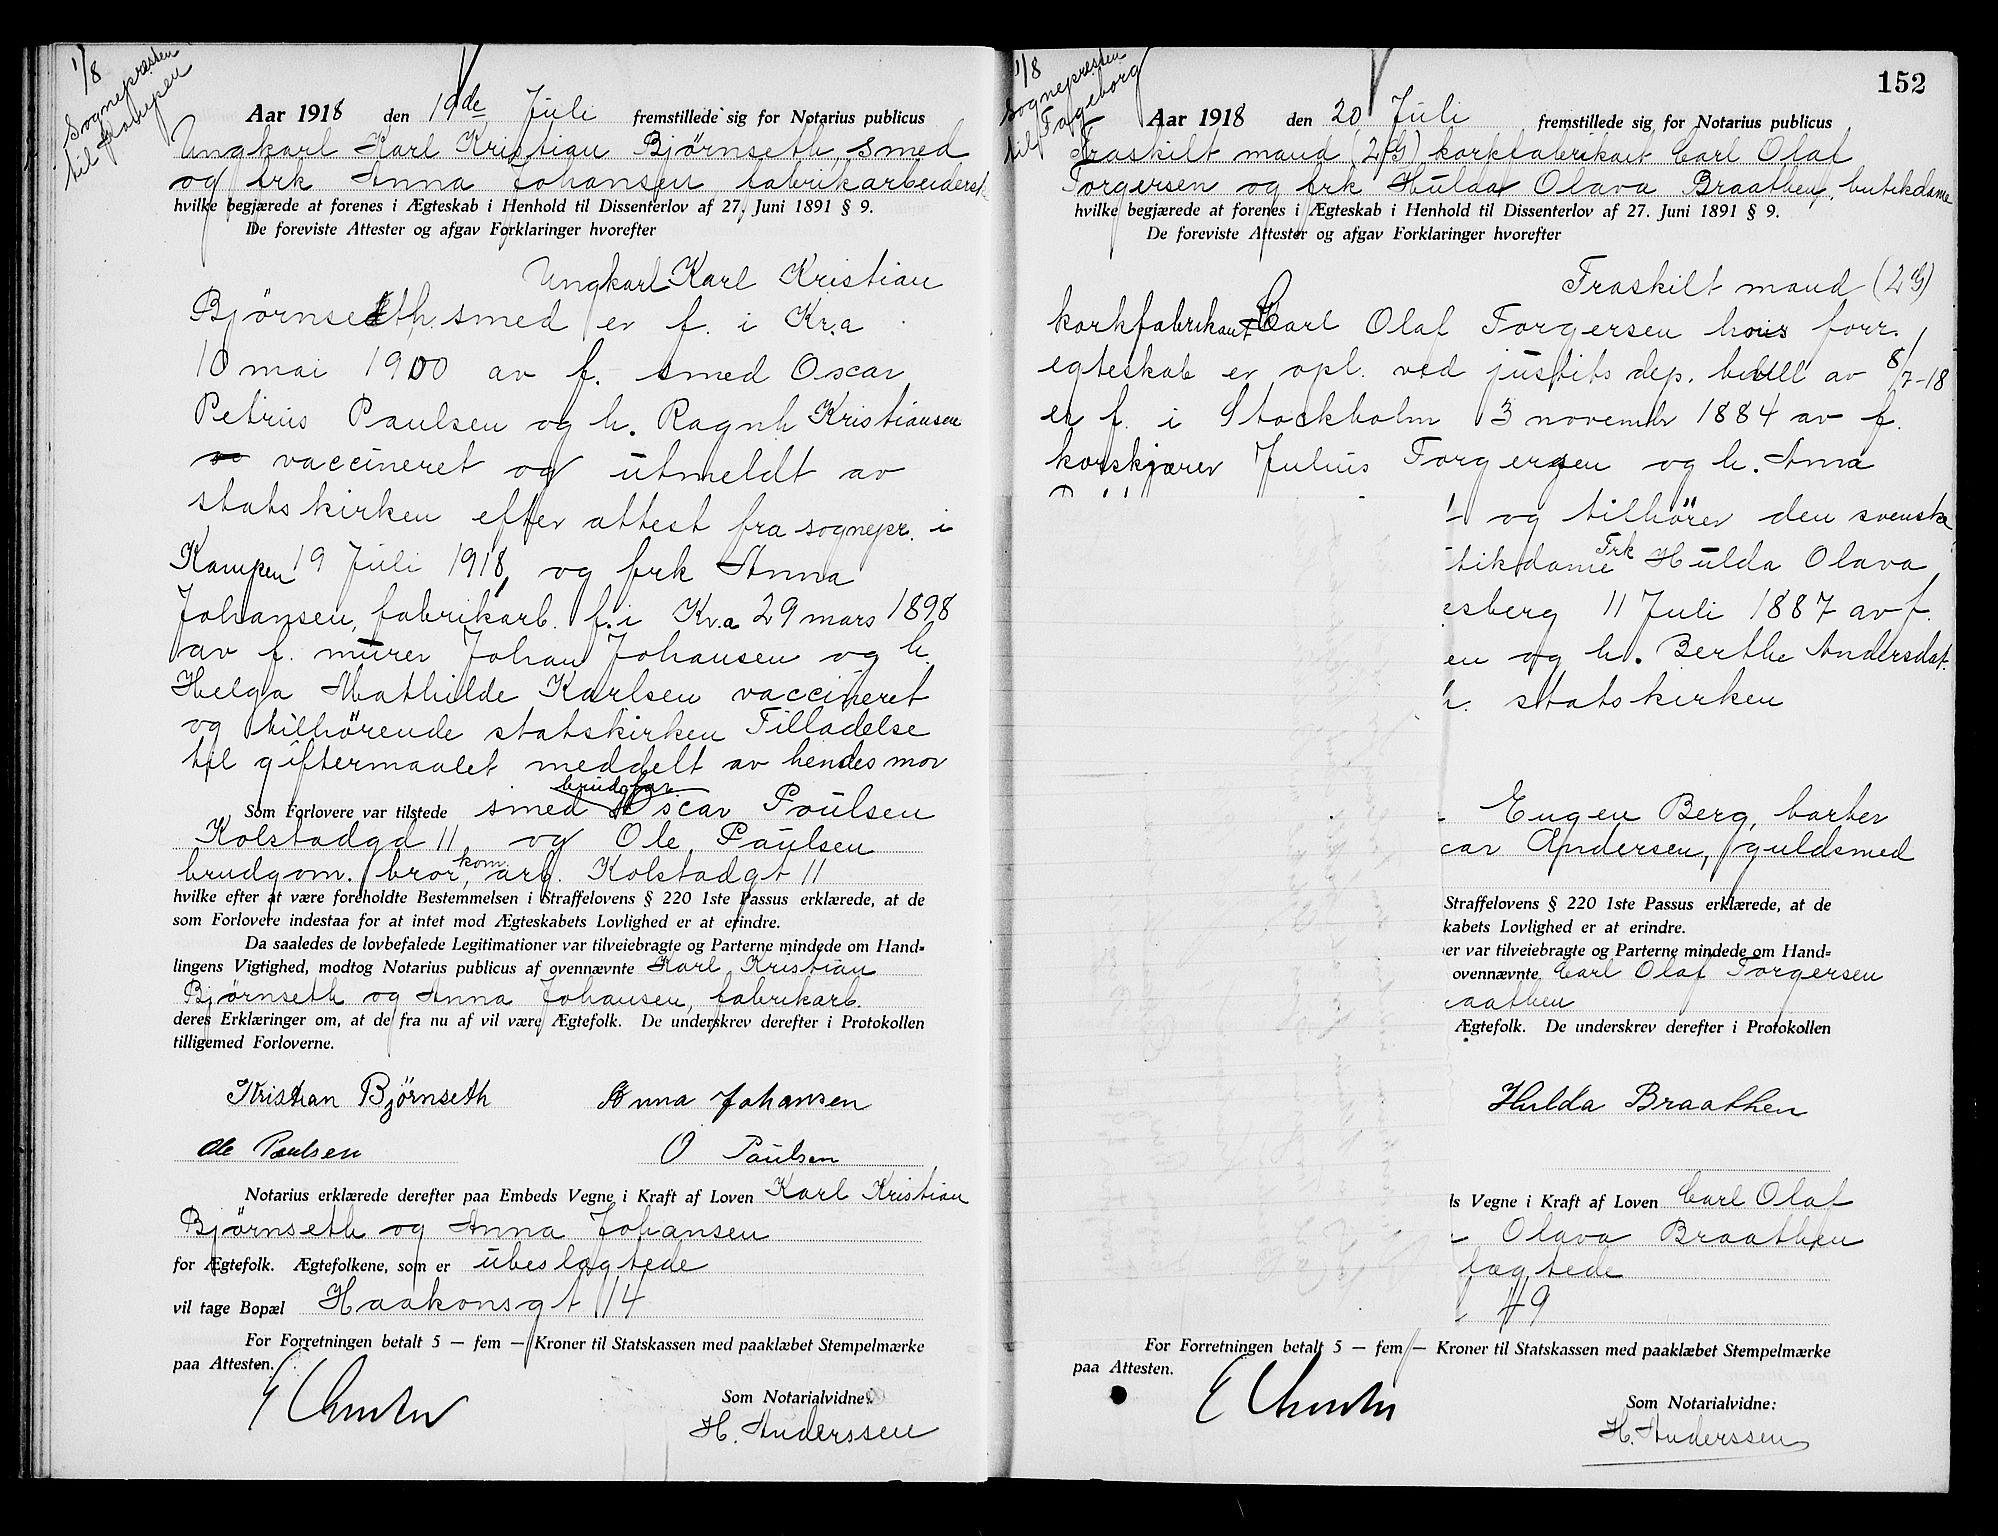 1/8
Sognepresten
til Kampen
Aar 1918 den 19de Juli fremstillede sig for Notarius publicus
Ungkarl Karl Kristian Bjørnseth, smed
og frk Anna Johansen, fabrikarbeiderske
hvilke begjærede at forenes i Ægteskab i Henhold til Dissenterlov af 27. Juni 1891 § 9.
De foreviste Attester og afgav Forklaringer hvorefter
Ungkarl Karl Kristian
Bjørnseth, smed er f. i Kr.a
10 mai 1900 av f. smed Oscar
Petrus Paulsen og h. Ragnh Kristiansen
vaccineret og utmeldt av
statskirken efter attest fra sognepr. i
Kampen 19 Juli 1918, og frk Anna
Johansen, fabrikarb. f. i Kr.a 29 mars 1898
av f. murer Johan Johansen og h.
Helga Mathilde Karlsen vaccineret
og tilhørende statskirken Tilladelse
til giftermaalet meddelt av hendes mor
brudgfar
Som Forlovere var tilstede smed Oscar Poulsen
Kolstadgd 11 og Ole Paulsen
brudgom. bror, kom. arb. Kolstadgt 11
hvilke efter at være foreholdte Bestemmelsen i Straffelovens § 220 1ste Passus erklærede, at de
som Forlovere indestaa for at intet mod Ægteskabets Lovlighed er at erindre.
Da saaledes de lovbefalede Legitimationer var tilveiebragte og Parterne mindede om Hand-
lingens Vigtighed, modtog Notarius publicus af ovennævnte Karl Kristian
Bjørnseth og Anna Johansen, fabrikarb.
deres Erklæringer om, at de fra nu af vil være Ægtefolk. De underskrev derefter i Protokollen
tilligemed Forloverne.
Kristian Bjørnseth Anna Johansen
Ole Paulsen O Paulsen
Notarius erklærede derefter paa Embeds Vegne i Kraft af Loven Karl Kristian
Bjørnseth og Anna Johansen
for Ægtefolk. Ægtefolkene, som er ubeslægtede
vil tage Bopæl Haakonsgt 14
For Forretningen betalt 5 — fem — Kroner til Statskassen med paaklæbet Stempelmærke
paa Attesten.
Som Notarialvidne:
H. Anderssen
152
1/8
Sognepresten
til Fageborg
Aar 1918 den 20 Juli fremstillede sig for Notarius publicus
Fraskilt mand (2 G) korkfabrikant Carl Olaf
Torgersen og frk Hulda Olava Braathen, butikdame
hvilke begjærede at forenes i Ægteskab i Henhold til Dissenterlov af 27. Juni 1891 § 9.
De foreviste Attester og afgav Forklaringer hvorefter
Fraskilt mand (2 G)
korkfabrikant Carl Olaf Torgersen hvis forr.
egteskab er opl. ved justits dep. bevill av 8/7-18
er f. i Stockholm 3 novembr 1884 av f.
korskjærer Julius Torgersen og h. Anna
og tilhører den svenske
tikdame Frk Hulda Olava
esberg 11 Juli 1887 av f.
en og h. Berthe Andersdat.
statskirken
Eugen Berg, barber
car Andersen, guldsmed
Straffelovens § 220 1ste Passus erklærede, at de
kabets Lovlighed er at erindre.
er var tilveiebragte og Parterne mindede om Hand-
ovennævnte Carl Olaf Torgersen
aathen
Ægtefolk. De underskrev derefter i Protokollen
Hulda Braathen
ds Vegne i Kraft af Loven Carl Olaf
Olava Braathen
lægtede
49
For Forretningen betalt 5 — fem — Kroner til Statskassen med paaklæbet Stempelmærke
paa Attesten.
Som Notarialvidne:
H. Anderssen